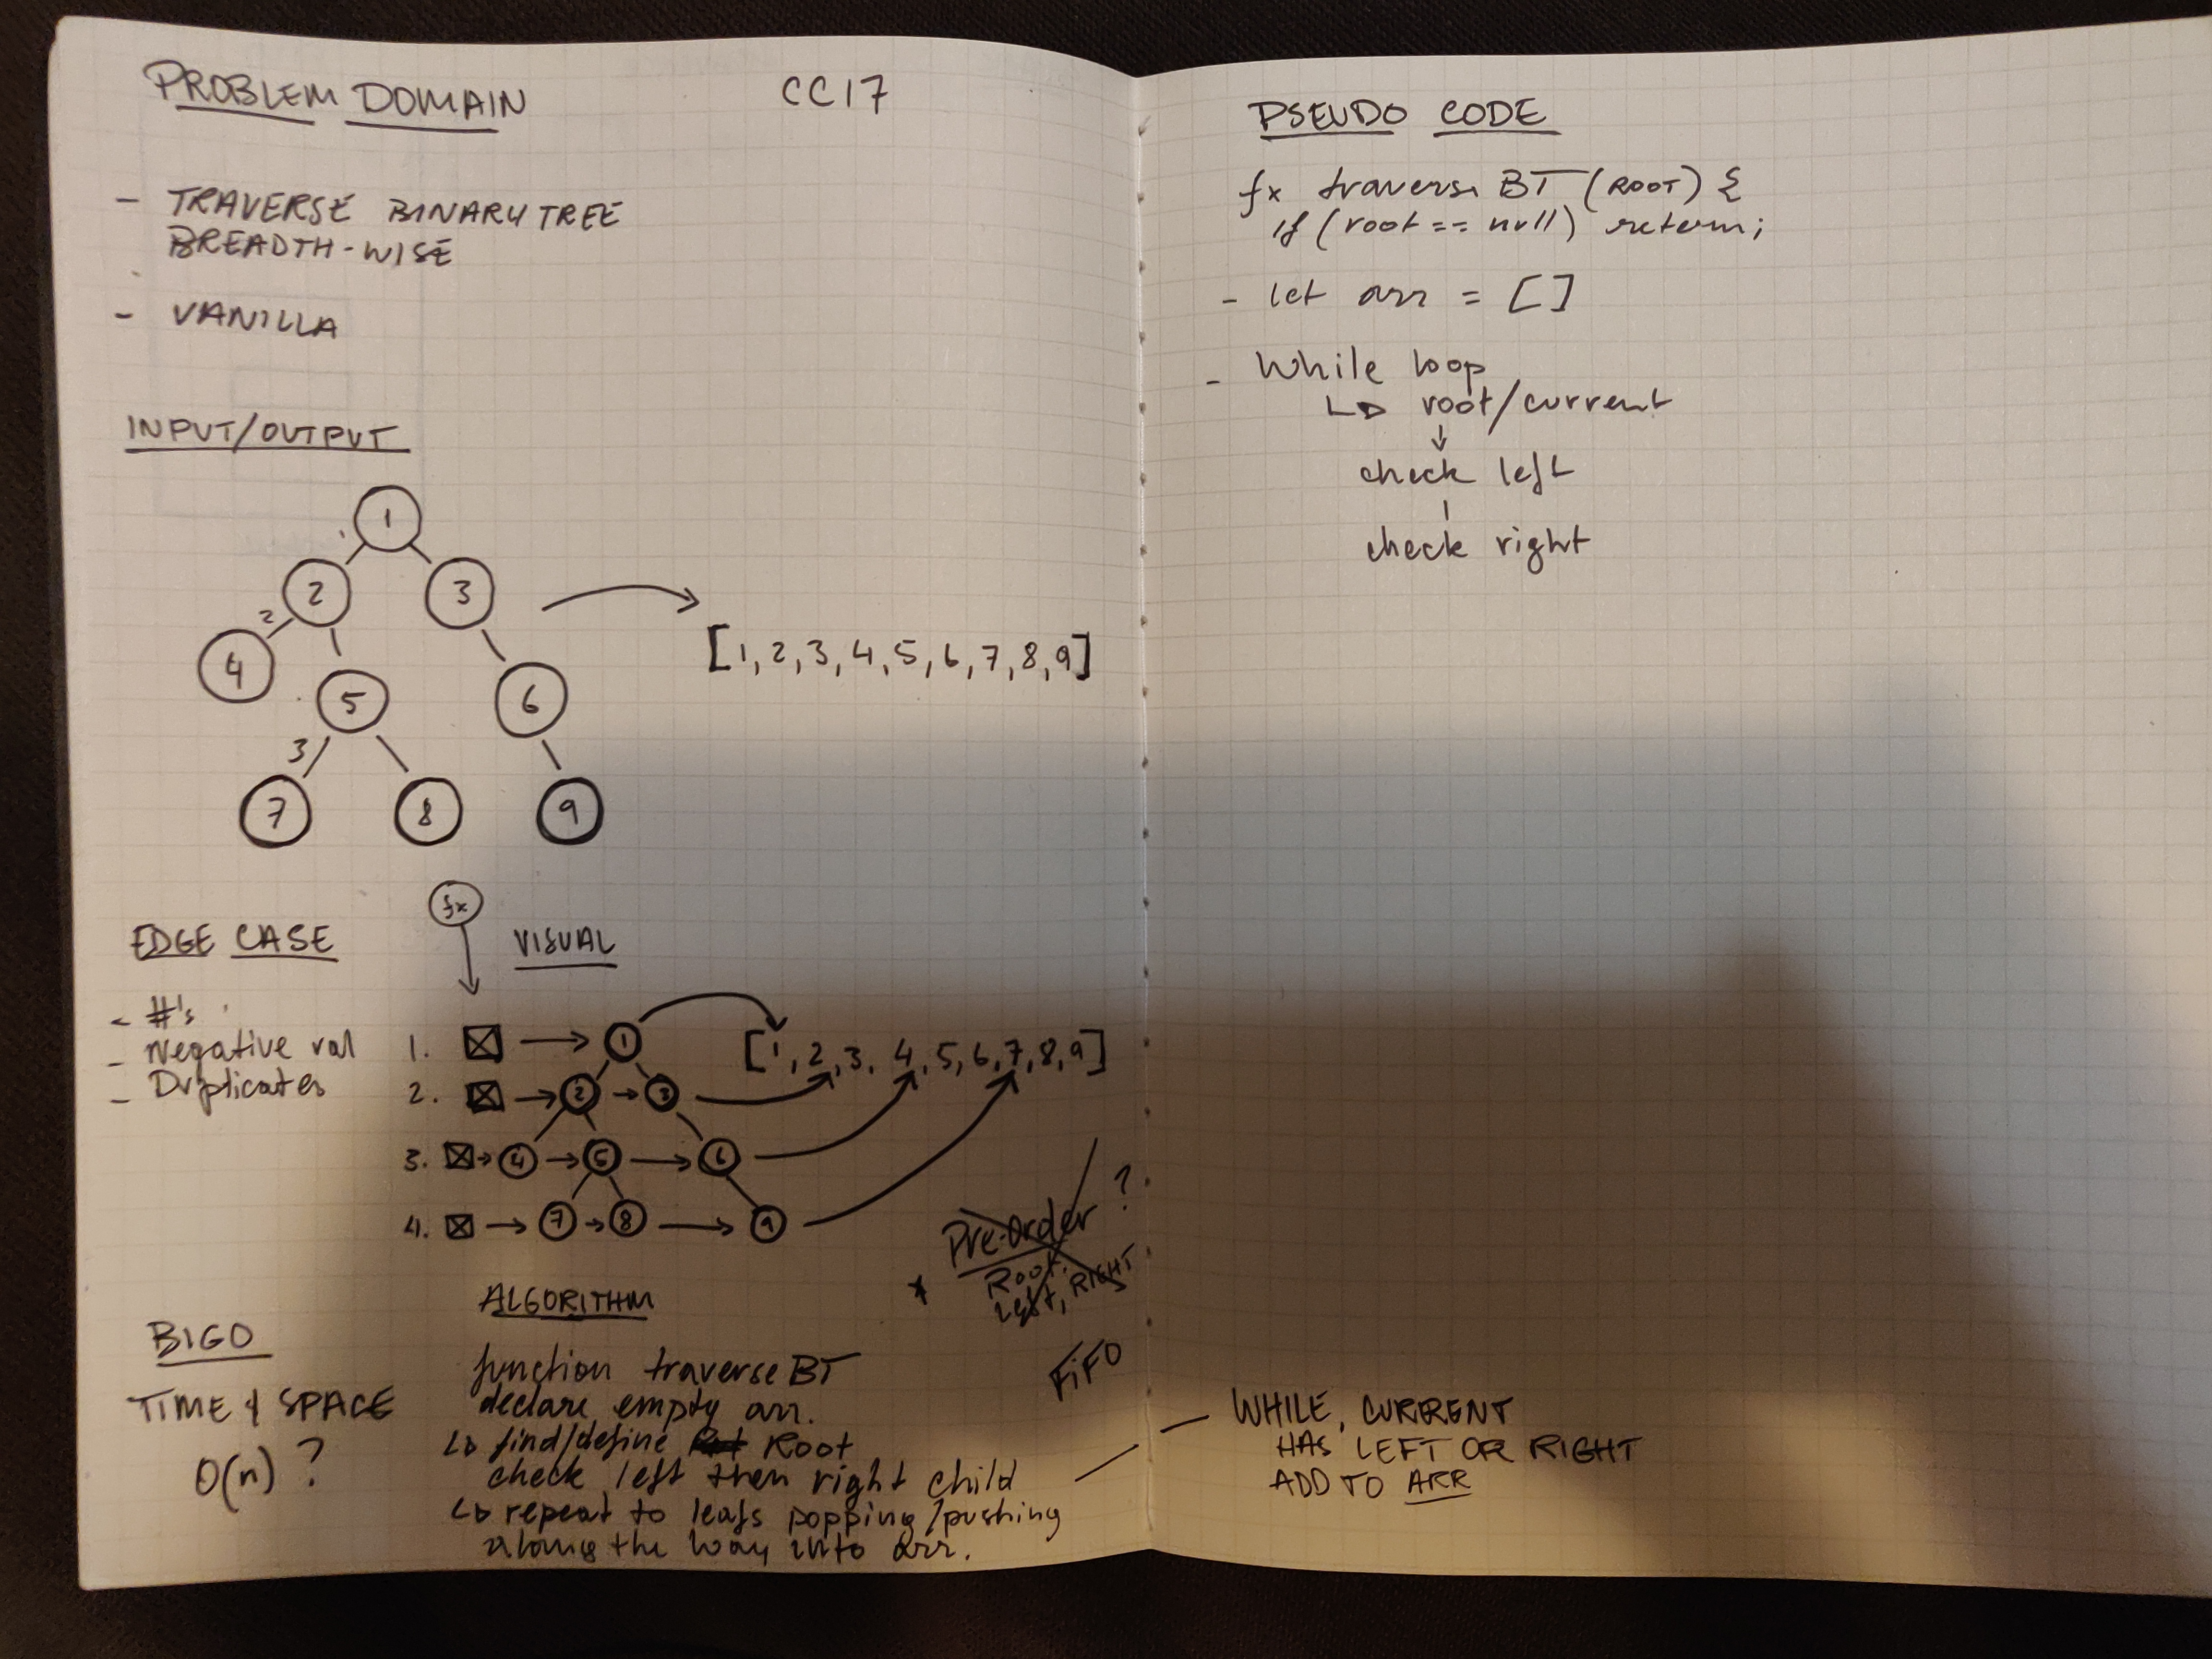 PROBLEM DOMAIN
CC17
- TRAVERSE BINARY TREE
BREADTH-WISE
- VANILLA
INPUT/OUTPUT
1
2
3
2
4
5
6
3
7
8
9
[1, 2, 3, 4, 5, 6, 7, 8, 9]
EDGE CASE
- #'s
- Negative val
- Duplicates
fx
VISUAL
1. 1
[1, 2, 3, 4, 5, 6, 7, 8, 9]
2. 2 3
3. 4 5 6
4. 7 8 9
* Pre-Order ?
Root
Left, RIGHT
FiFO
BIGO
TIME & SPACE
O(n) ?
ALGORITHM
function traverse BT
declare empty arr.
find/define Root
check left then right child
repeat to leafs popping/pushing
along the way into arr.
PSEUDO CODE
fx traverse BT (ROOT) {
if (root == null) return;
- let arr = []
- While loop
root/current
check left
check right
WHILE, CURRENT
HAS LEFT OR RIGHT
ADD TO ARR